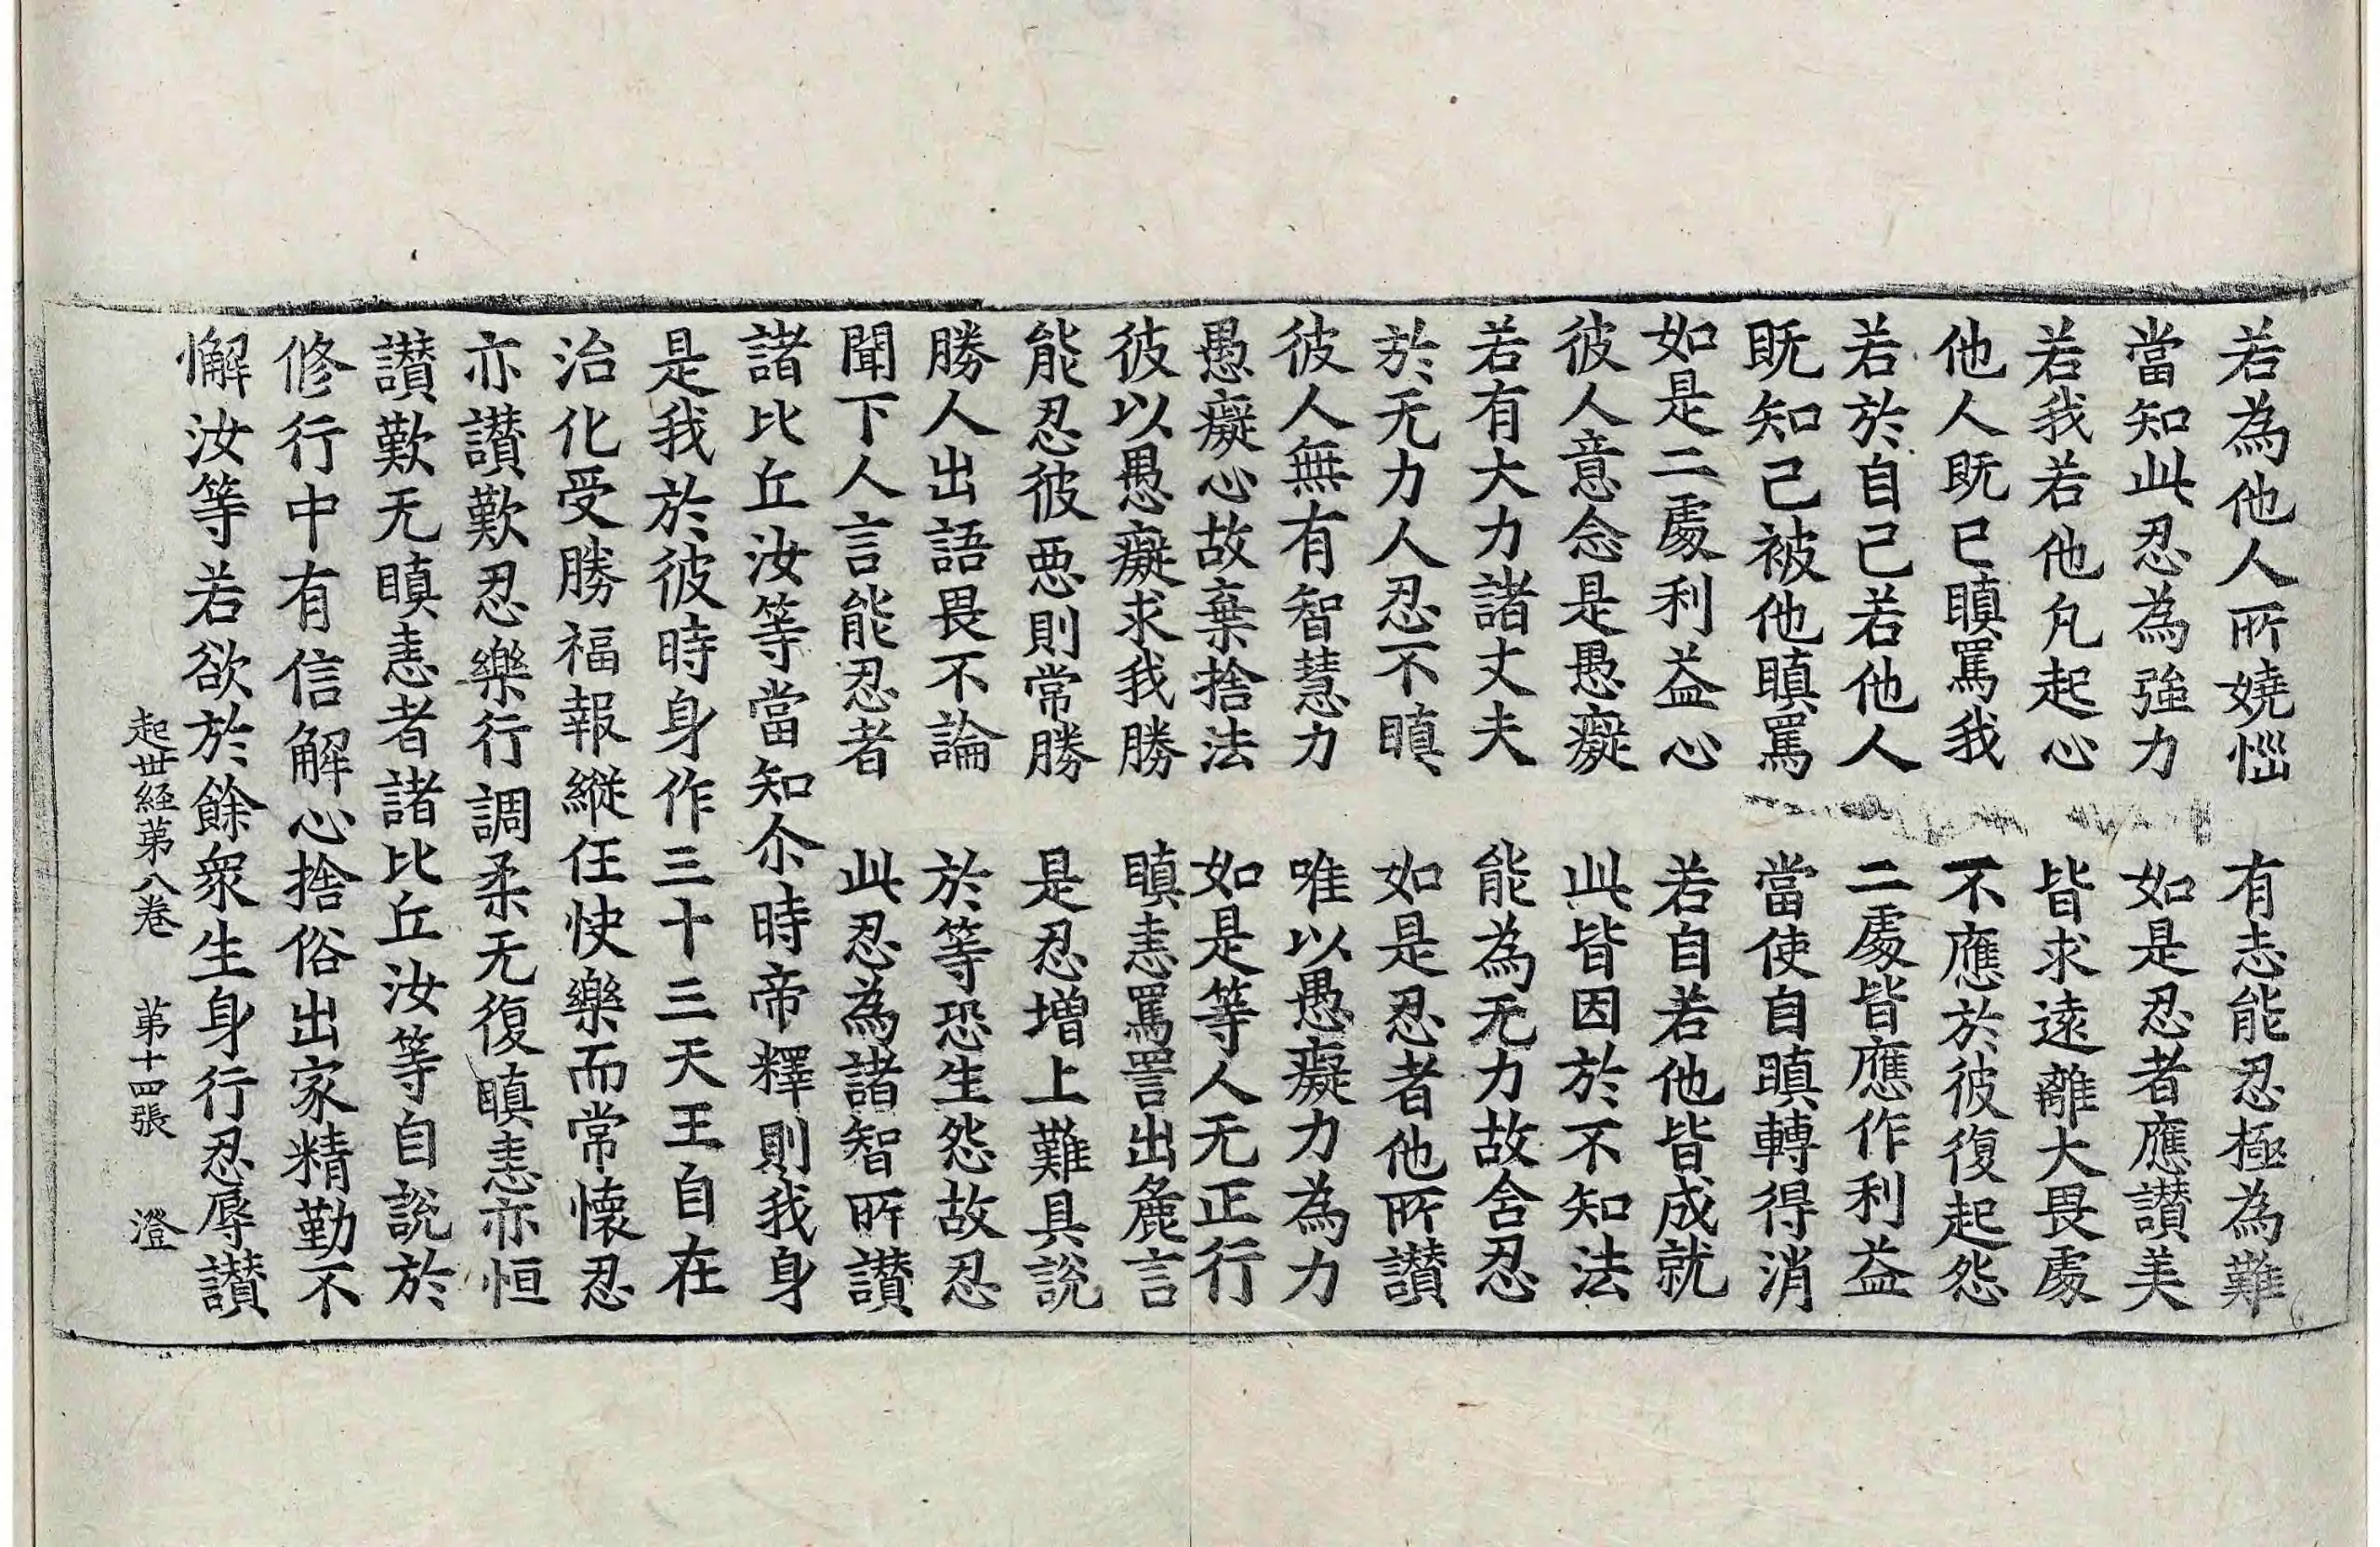 若為他人所嬈惱　有志能忍極為難
當知此忍為強力　如是忍者應讃美
若我若他凡起心　皆求遠離大畏處
他人既已瞋罵我　不應於彼復起怨
若於自己若他人　二處皆應作利益
既知己被他瞋罵　當使自瞋轉得消
如是二處利益心　若自若他皆成就
彼人意念是愚癡　此皆因於不知法
若有大力諸丈夫　能為无力故舍忍
於无力人忍不瞋　如是忍者他所讃
彼人無有智慧力　唯以愚癡力為力
愚癡心故棄捨法　如是等人无正行
彼以愚癡求我勝　瞋恚罵詈出麁言
能忍彼惡則常勝　是忍增上難具說
勝人出語畏不論　於等恐生怨故忍
聞下人言能忍者　此忍為諸智所讃
諸比丘汝等當知尒時帝釋則我身
是我於彼時身作三十三天王自在
治化受勝福報縱任快樂而常懷忍
亦讃歎忍樂行調柔无復瞋恚亦恒
讃歎无瞋恚者諸比丘汝等自說於
修行中有信解心捨俗出家精勤不
懈汝等若欲於餘衆生身行忍辱讃
起世経第八卷　第十四張　澄